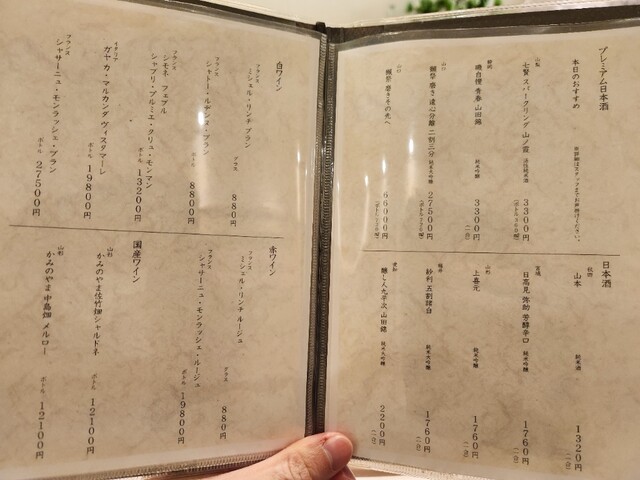 プレミアム日本酒
本日のおすすめ
※詳細はスタッフまでお声掛けください。
山梨
七賢 スパークリング 山ノ霞 活性純米酒
3300円
静岡
磯自慢 青春 山田錦 純米吟醸
3300円
(一合)
山口
獺祭 磨き 遠心分離 二割三分 純米大吟醸
27500円
山口
獺祭 磨きその先へ
66000円
日本酒
秋田
山本 純米酒
1320円
(一合)
宮城
日高見 弥助 芳醇辛口 純米吟醸
1760円
(一合)
山形
上喜元 純米吟醸
1760円
(一合)
福井
紗利 五割諸白 純米大吟醸
1760円
(一合)
愛知
醸し人九平次 山田錦 純米大吟醸
2200円
(一合)
白ワイン
フランス
ミシェル・リンチ ブラン
グラス 880円
フランス
シャトー・ルデンヌ・ブラン
8800円
フランス
シモネ・フェブル
シャブリ・プルミエ・クリュ・モンマン
ボトル 13200円
イタリア
ガヤ カ・マルカンダ ヴィスタマーレ
ボトル 19800円
フランス
シャサーニュ・モンラッシェ・ブラン
ボトル 27500円
赤ワイン
フランス
ミシェル・リンチ ルージュ
グラス 880円
フランス
シャサーニュ・モンラッシェ・ルージュ
ボトル 19800円
国産ワイン
山形
かみのやま佐竹畑 シャルドネ
ボトル 12100円
山形
かみのやま 中島畑 メルロー
ボトル 12100円